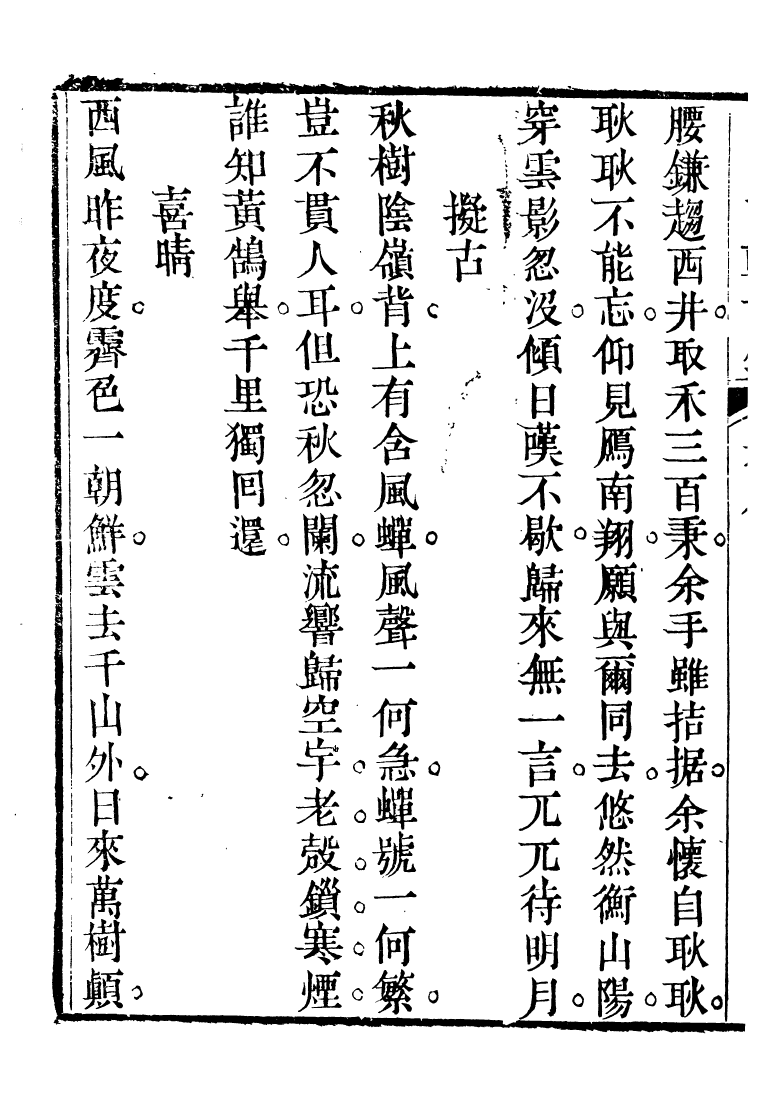 腰鎌趨西井。取禾三百秉。余手雖拮据。余懷自耿耿。
耿耿不能忘。仰見鴈南翔。願與爾同去。悠然衡山陽。
穿雲影忽沒。傾日嘆不歇。歸來無一言。兀兀待明月。
擬古
秋樹陰嶺背。上有含風蟬。風聲一何急。蟬號一何繁。
豈不貫人耳。但恐秋忽闌。流響歸空宇。老殼鎖寒煙。
誰知黃鵠舉。千里獨回還。
喜晴
西風昨夜度。霽色一朝鮮。雲去千山外。日來萬樹顛。